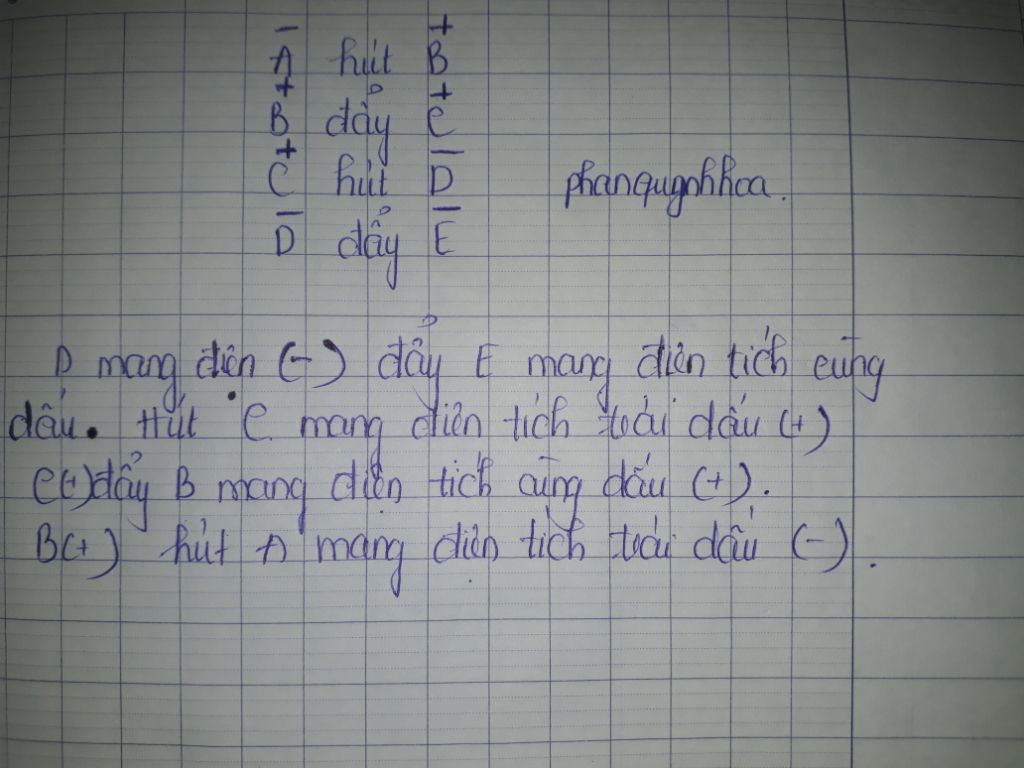 − +
A hút B
+ +
B đẩy C
+ −
C hút D
− −
D đẩy E
phanquynhhoa.
D mang điện (-) đẩy E mang điện tích cùng
dấu. Hút C mang điện tích trái dấu (+)
C(+) đẩy B mang điện tích cùng dấu (+).
B(+) hút A mang điện tích trái dấu (-).